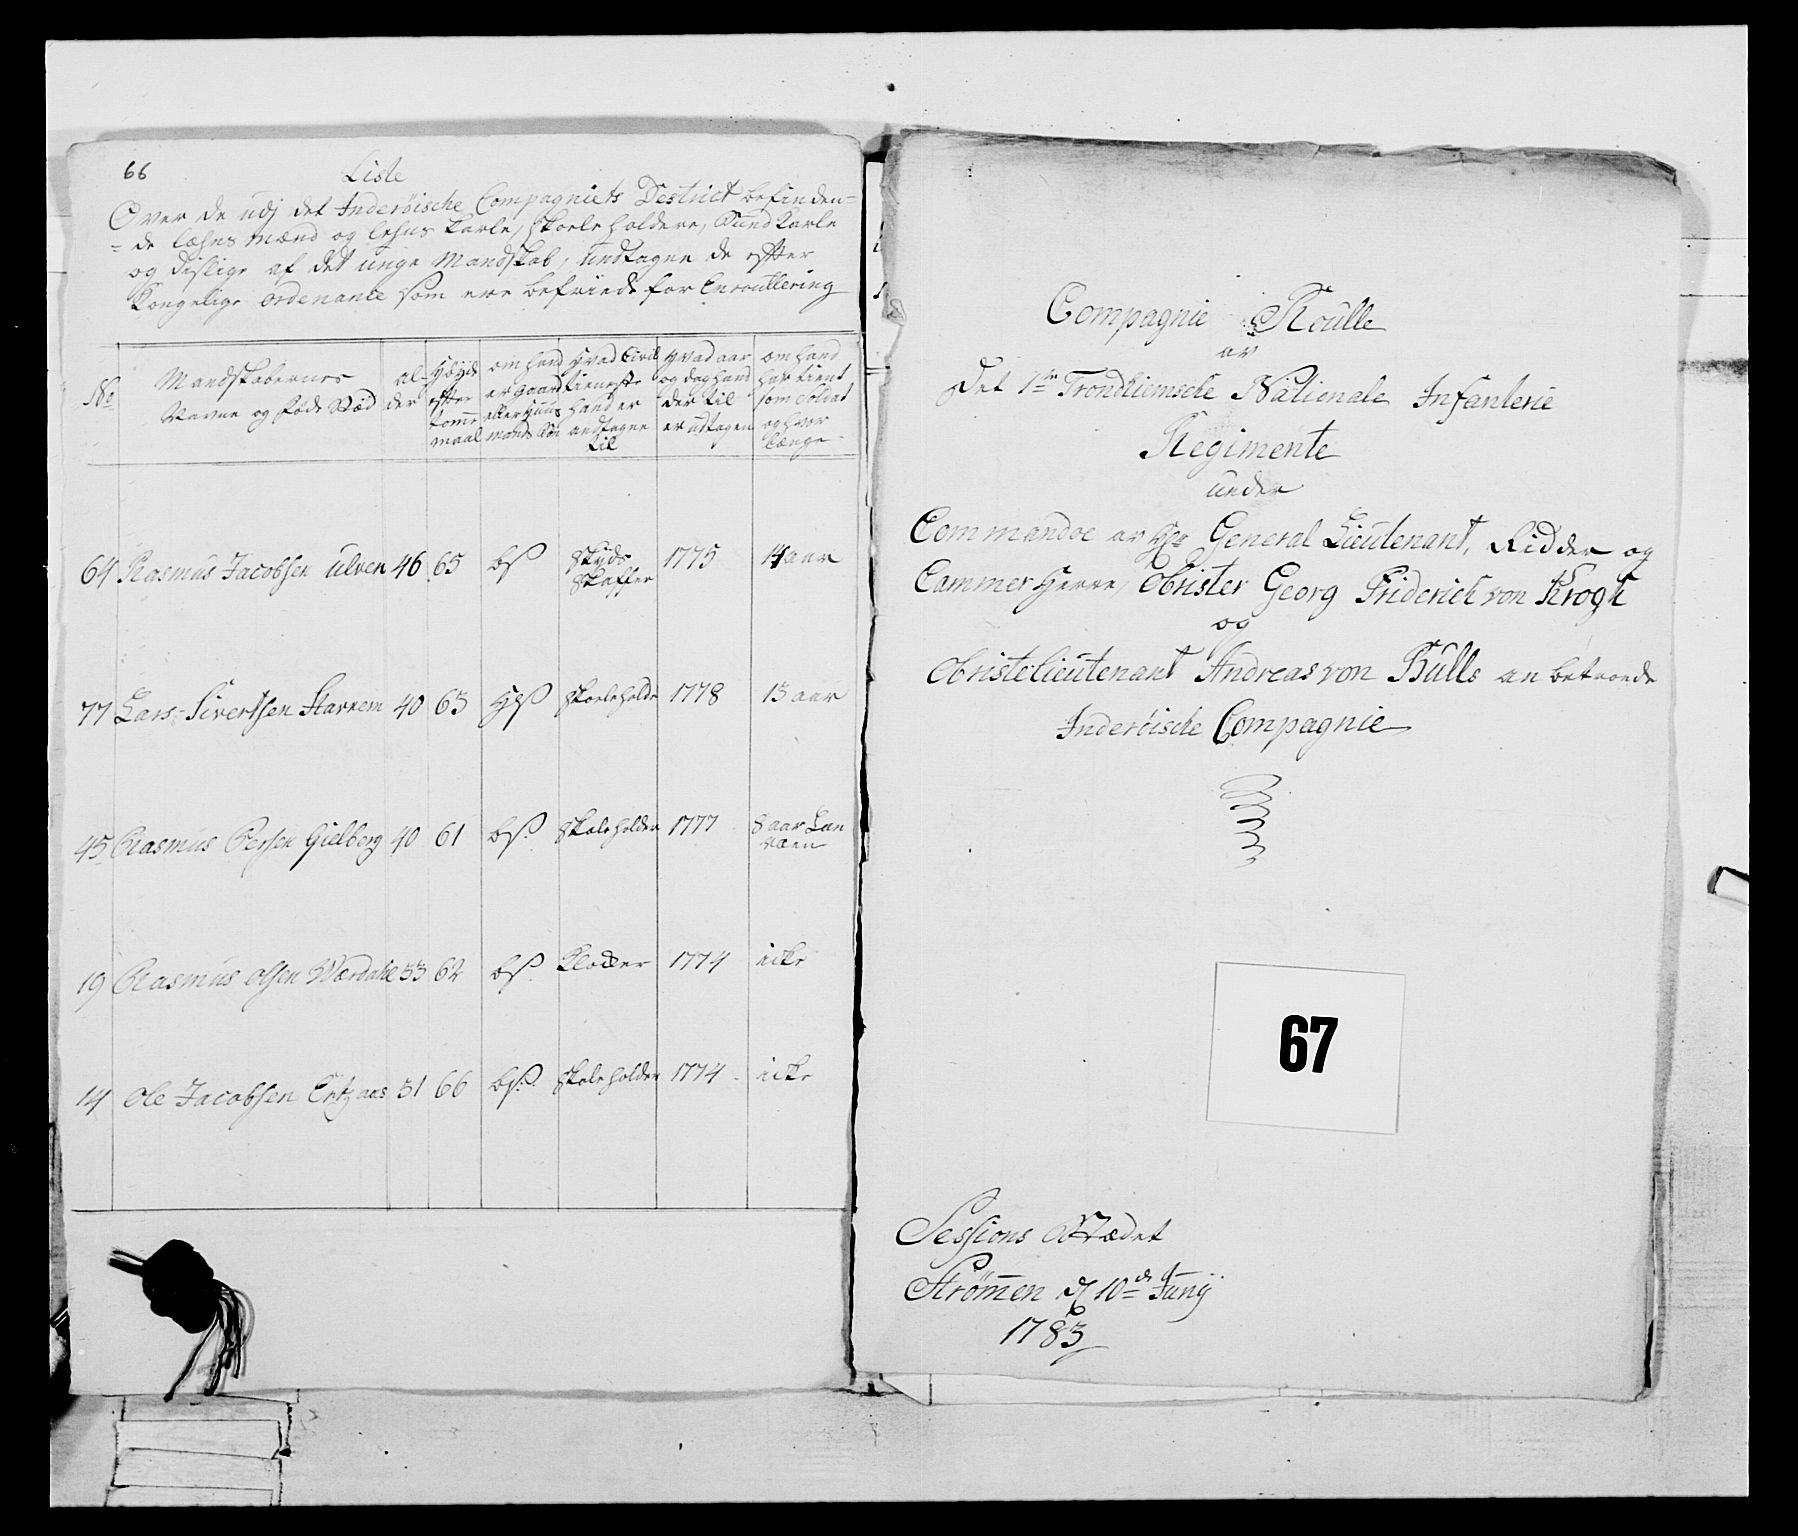 66
Liste
Over de udj det Inderöische Compagniets Destrict befinden=
=de læhns mænd og lehns Karle, skoele holdere, Sund Karle
og dislige af det unge Mandskab, undtagne de efter
Kongelige ordenance som ere befriede for Enroullering
No
Mandskabernes Navne og føde Stæd
al- der
Høyde efter tomme maal
om hand er gaard eller Huus mands Søn
Hvad Civil tieneste hand er andtagne til
Hvad aar og dag hand der til er udtagen
om hand har tient som Soldat og hvor længe
64 Rasmus Jacobsen Ulven 46 65 bß skyds skaffer 1775 14 aar
77 Lars Sivertsen Starrem 40 63 Hß skoeleholder 1778 13 aar
45 Rasmus Persen Gielberg 40 61 bß. skoleholder 1777 8 aar Lan
væen
19 Rasmus Olsen Wærdahl 33 62 bß. Klocker 1774 icke
14 Ole Jacobsen Ertzaas 31 66 bß. skoleholder 1774 icke
Compagnie Roulle
av
Det 1te Trondhiemsche Nationale Infanterie
Regimente
under
Commandoe av Hr General Lieutenant, Ridder og
Cammer Herre, Obrister Georg Friderich von Krogh
og
Obristelieutenant Andreas von Bülls an betroede
Inderöische Compagnie
67
Sessions Stædet
Strømen d 10de Junij
1783